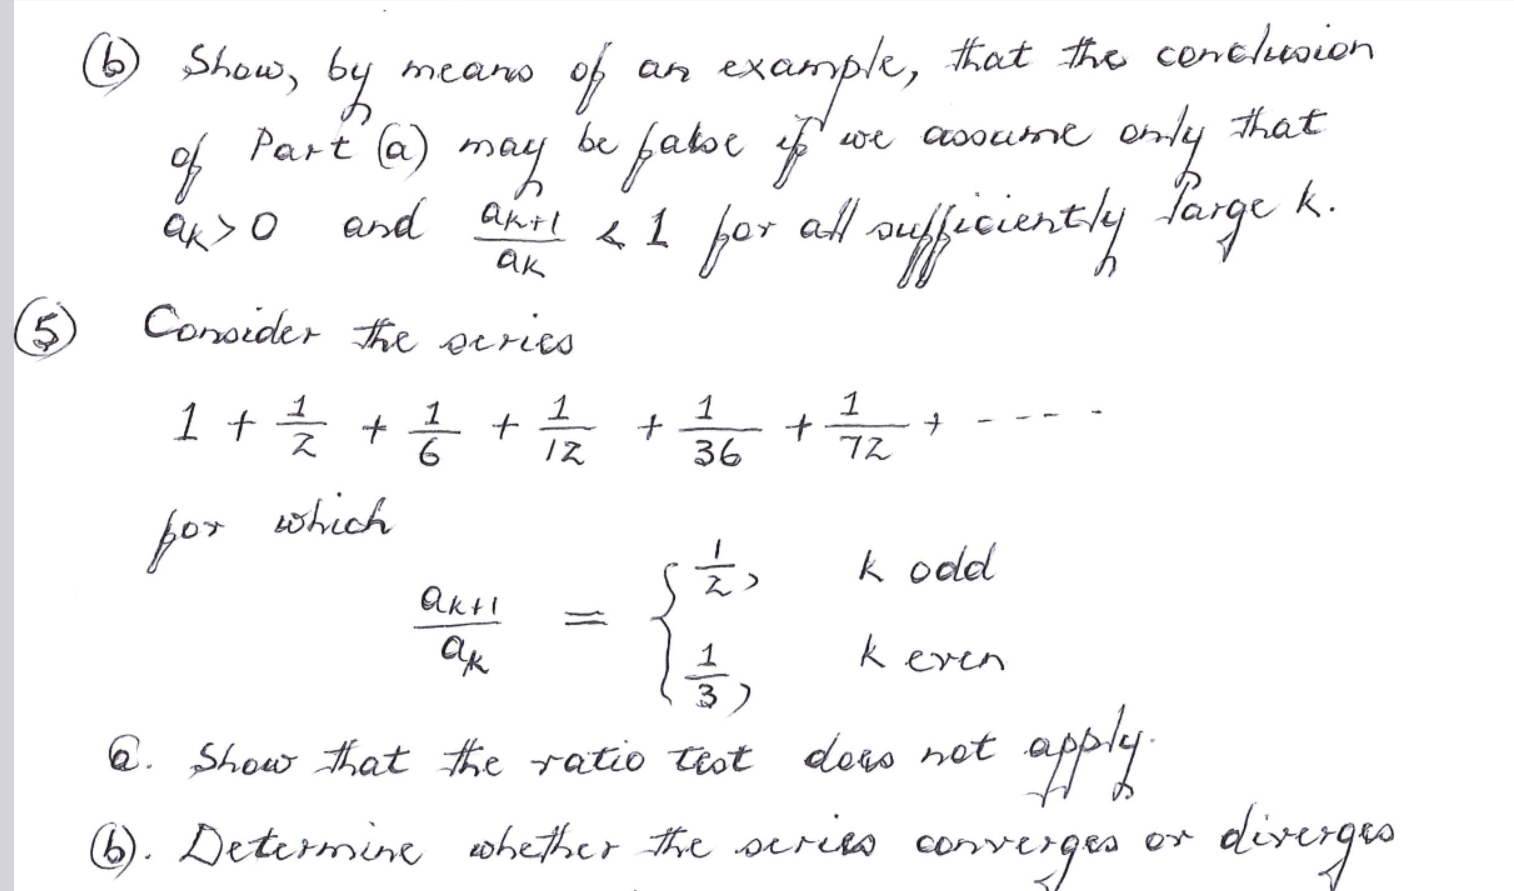 (b) Show, by means of an example, that the conclusion
of Part (a) may be false if we assume only that
ak>0 and ak+1/ak < 1 for all sufficiently large k.
(5) Consider the series
1 + 1/2 + 1/6 + 1/12 + 1/36 + 1/72 + ----
for which
ak+1/ak = { 1/2, k odd
1/3, k even
a. Show that the ratio test does not apply.
(b). Determine whether the series converges or diverges